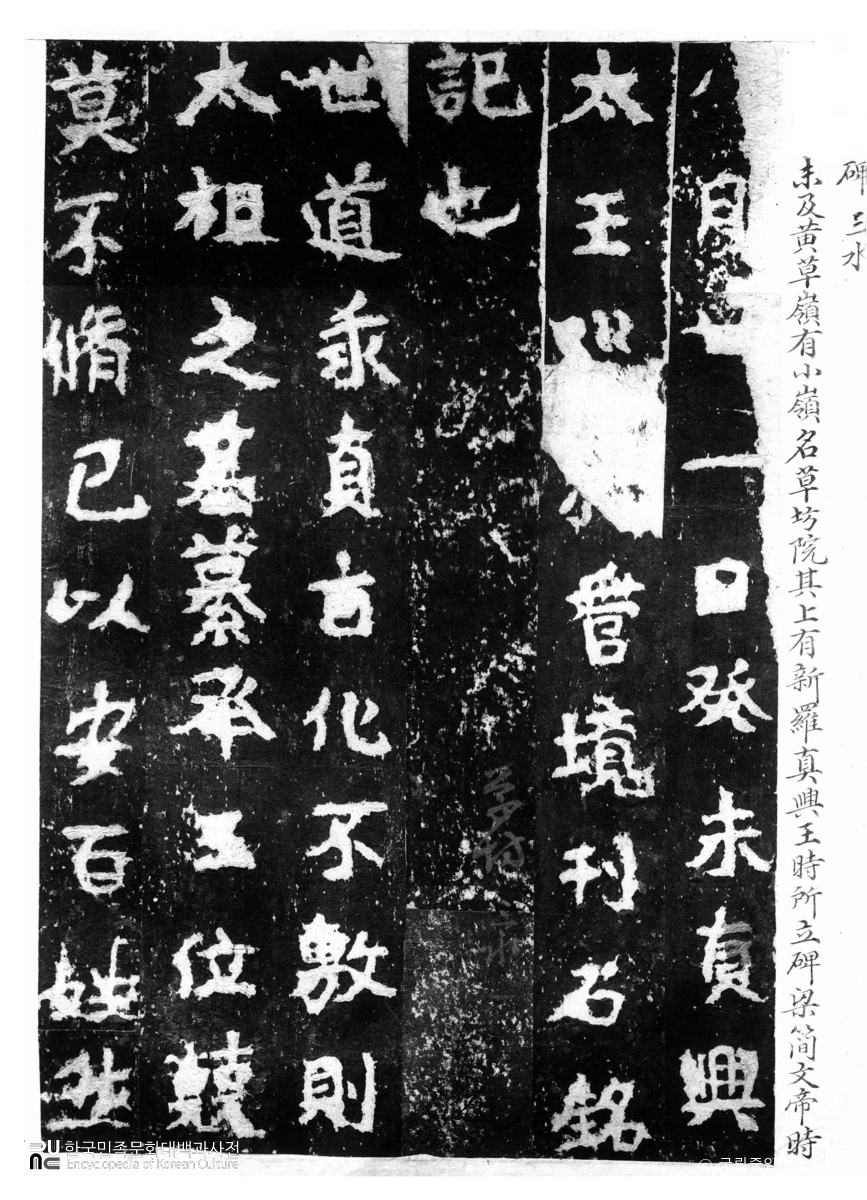 碑 三水
未及黃草嶺有小嶺名草坊院其上有新羅真興王時所立碑梁簡文帝時
月 一日癸未真興
太王巡 管境刊石銘
記也
世道乖真旨化不敷則
太祖之基纂承王位兢
莫不脩己以安百姓然
한국민족문화대백과사전
Encyclopedia of Korean Culture